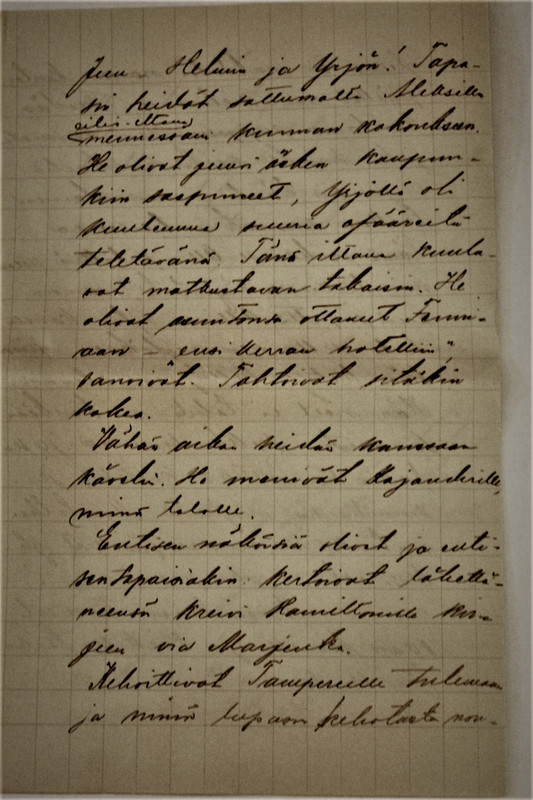 Jeen Helmin ja Yrjön! Tapa-
sin heidät sattumalta Aleksilla
eilis-iltana
mennessäni kunnan kokoukseen.
He olivat juuri äsken kaupun-
kiin saapuneet, Yrjöllä oli
kuulemma suuria afääreitä
teletävänä Tänä iltana kuulu-
vat matkustavan takaisin. He
olivat asuntonsa ottaneet Fenni-
aan – "ensi kerran hotelliin",
sanoivat. Tahtoivat sitäkin
kokea.
Vähän aikaa heidän kanssaan
kävelin. He menivät Kajanderille,
minä talolle.
Entisen näköisiä olivat ja enti-
sentapaisiakin: kertoivat lähettä-
neensä kreivi Hamiltonille kir-
jeen via Marjenka.
Kehoittivat Tampereelle tulemaan
ja minä lupasin kehotusta nou-